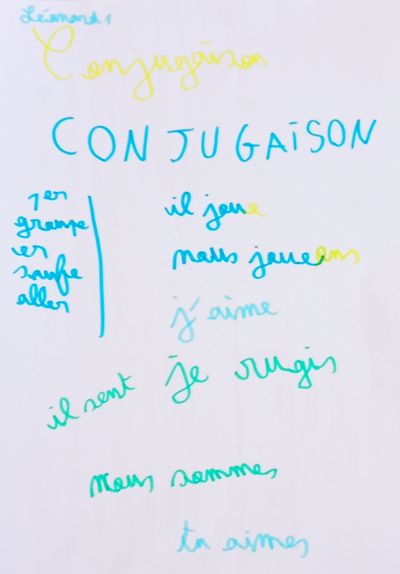 Léonard
Conjugaison
CONJUGAISON
1er
groupe
er
saufe
aller
il joue
nous joueons
j'aime
il sent je rugis
nous sommes
tu aimes